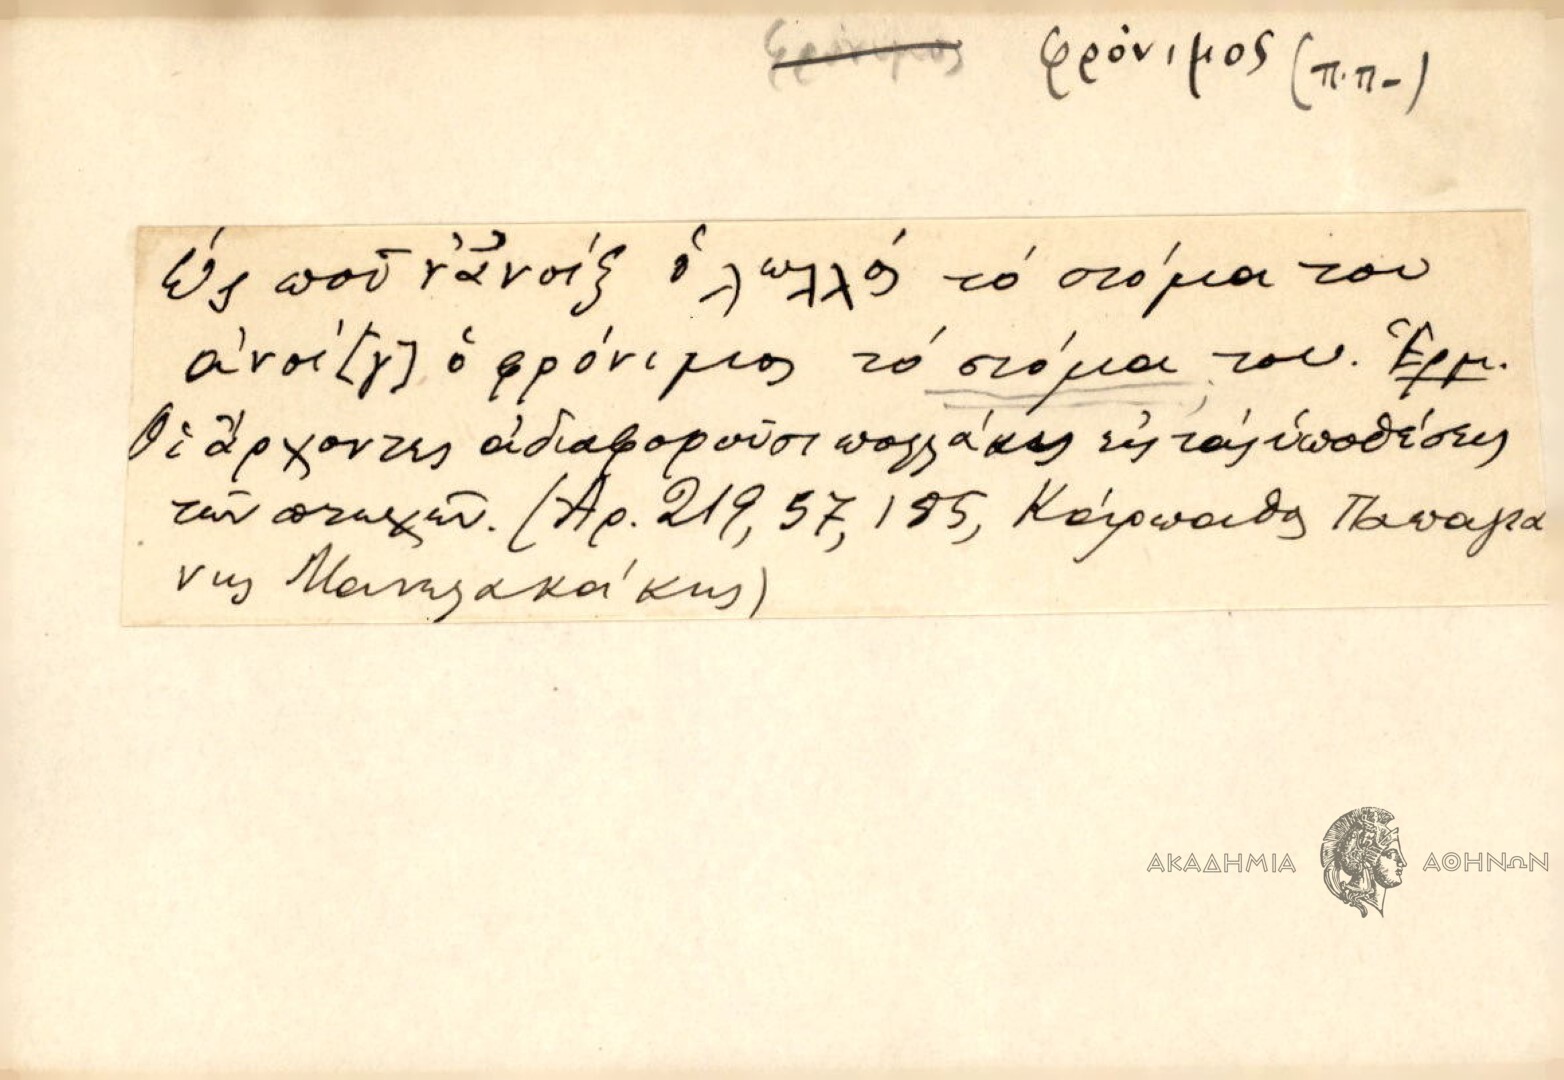 φρόνιμος φρόνιμος (π.π-)
Ὡς ποῦ ν' ἀνοίξ ὁ λωλλός τό στόμα του
ἀνοί[γ] ὁ φρόνιμος τό στόμα του. Ἑρμ.
Οἱ ἄρχοντες ἀδιαφοροῦσι πολλάκις εἰς τάς ὑποθέσεις
τῶν πτωχῶν. (Ἀρ. 219, 57, 185, Κάρπαθος Παπαγιά
νης Μανωλακάκης)
ΑΚΑΔΗΜΙΑ ΑΘΗΝΩΝ